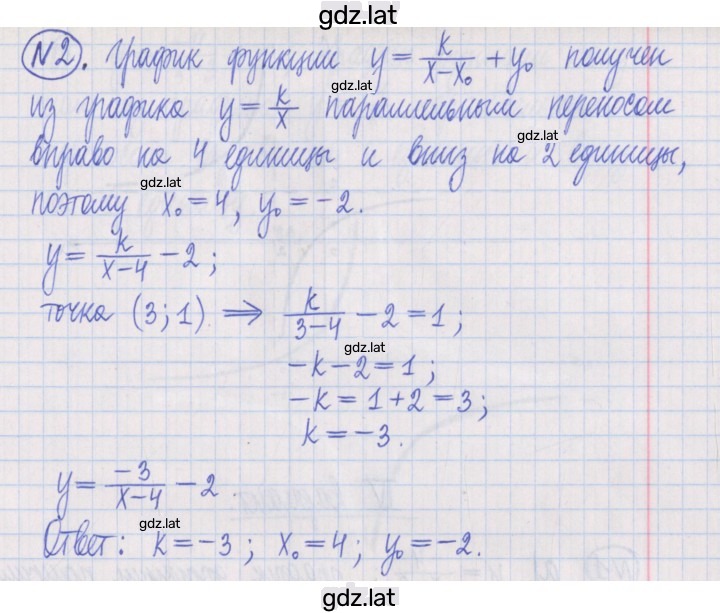 gdz.lat
№2. График функции y = k/(x-x₀) + y₀ получен
gdz.lat
из графика y = k/x параллельным переносом
gdz.lat
вправо на 4 единицы и вниз на 2 единицы,
gdz.lat
поэтому x₀ = 4, y₀ = -2.
y = k/(x-4) - 2;
точка (3; 1) ⟹ k/(3-4) - 2 = 1;
gdz.lat
-k - 2 = 1;
-k = 1 + 2 = 3;
k = -3.
y = -3/(x-4) - 2
gdz.lat
Ответ: k = -3; x₀ = 4; y₀ = -2.
gdz.lat